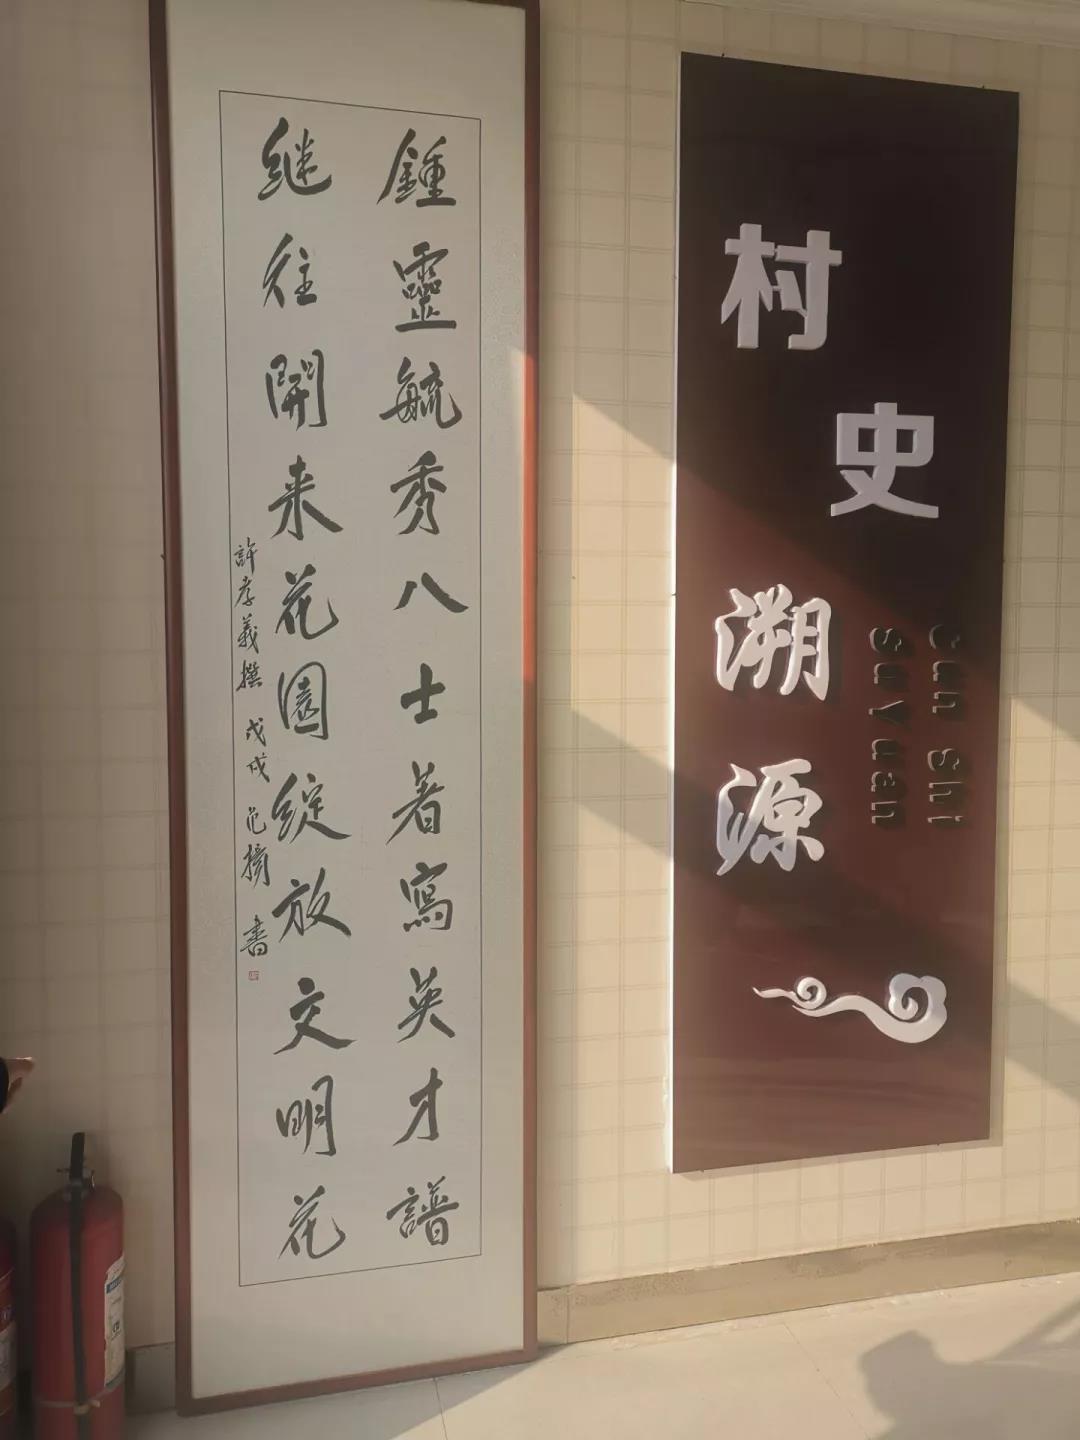 鍾靈毓秀八士著寫英才譜
继往開来花園綻放文明花
許孝義撰 戊戌 范楊 書
村史
溯源
Cun Shi
Su Yuan